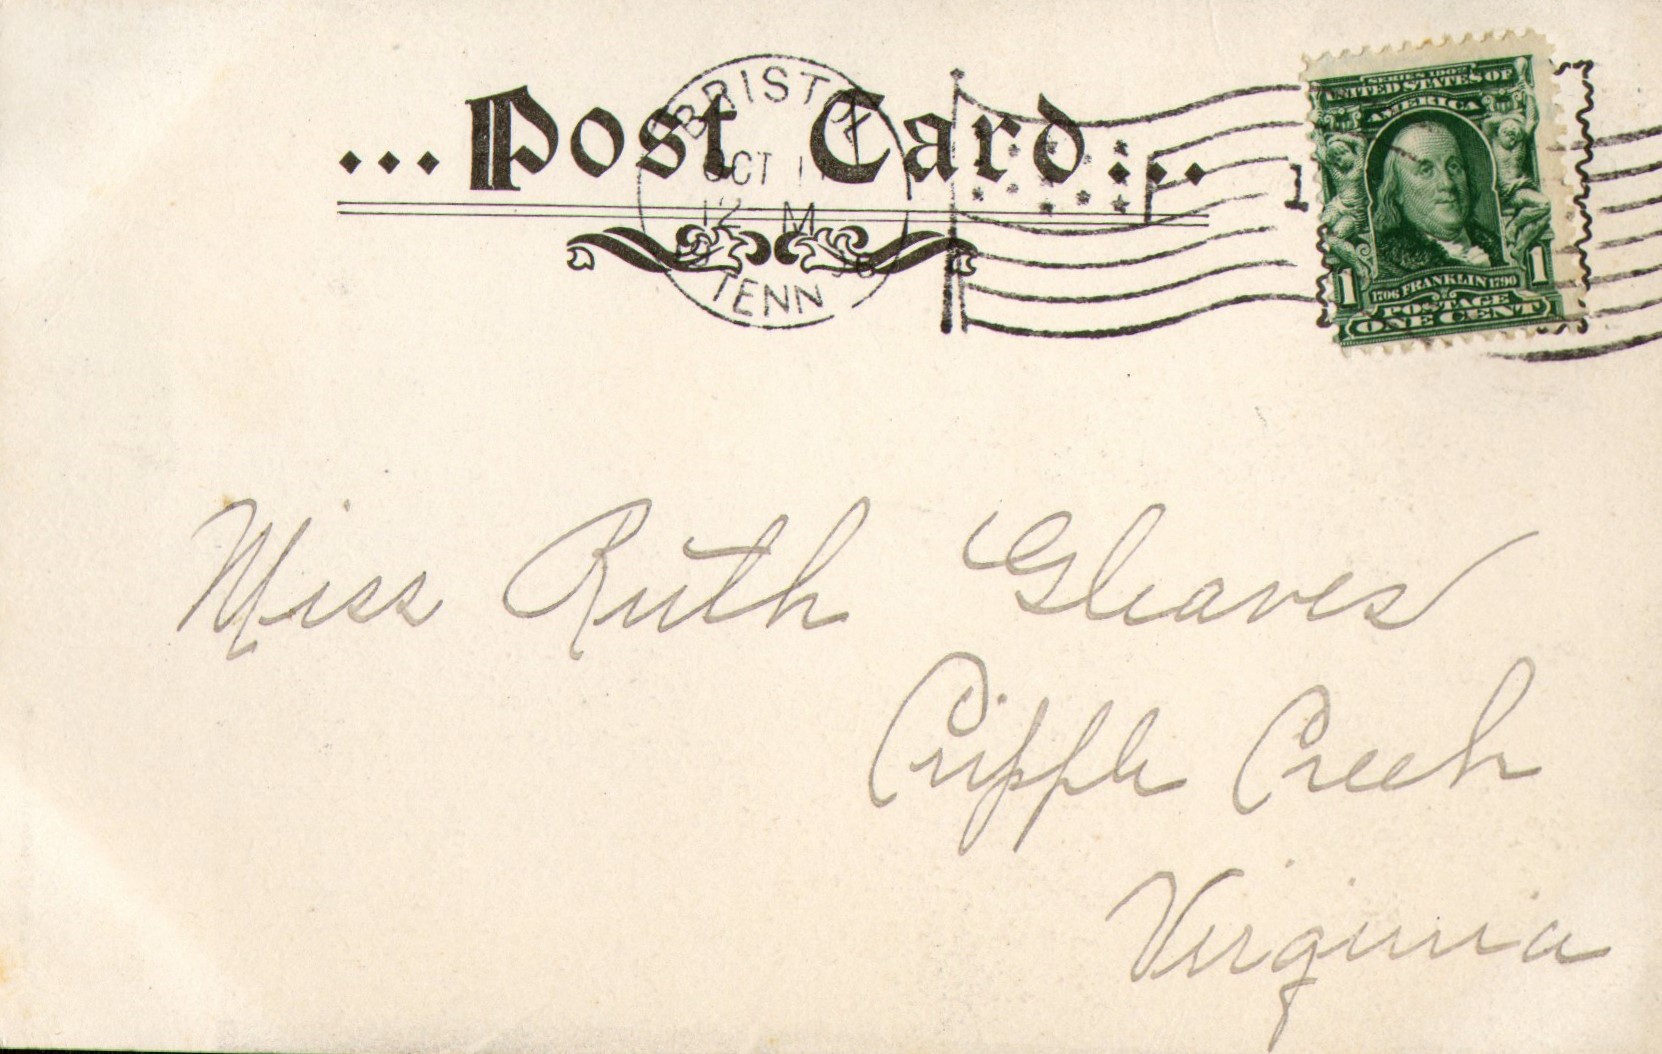 ...Post Card...
BRISTOL
OCT 1
12 M
06
TENN
1
SERIES 1902
UNITED STATES OF
AMERICA
1 1
1706 FRANKLIN 1790
POSTAGE
ONE CENT
Miss Ruth Gleaves
Cripple Creek
Virginia